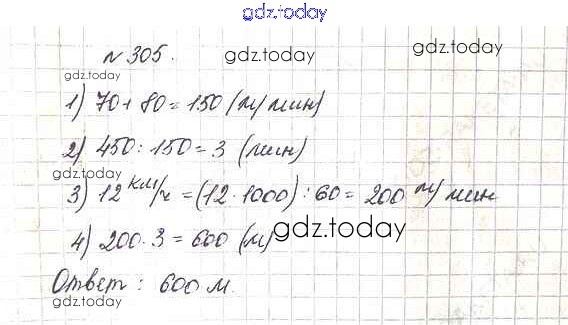 gdz.today
№ 305.
gdz.today
gdz.today
gdz.today
1) 70+80=150 (м/мин)
2) 450:150=3 (мин)
gdz.today
3) 12 км/ч =(12·1000):60=200 м/мин
4) 200·3=600 (м)
gdz.today
Ответ: 600 м.
gdz.today